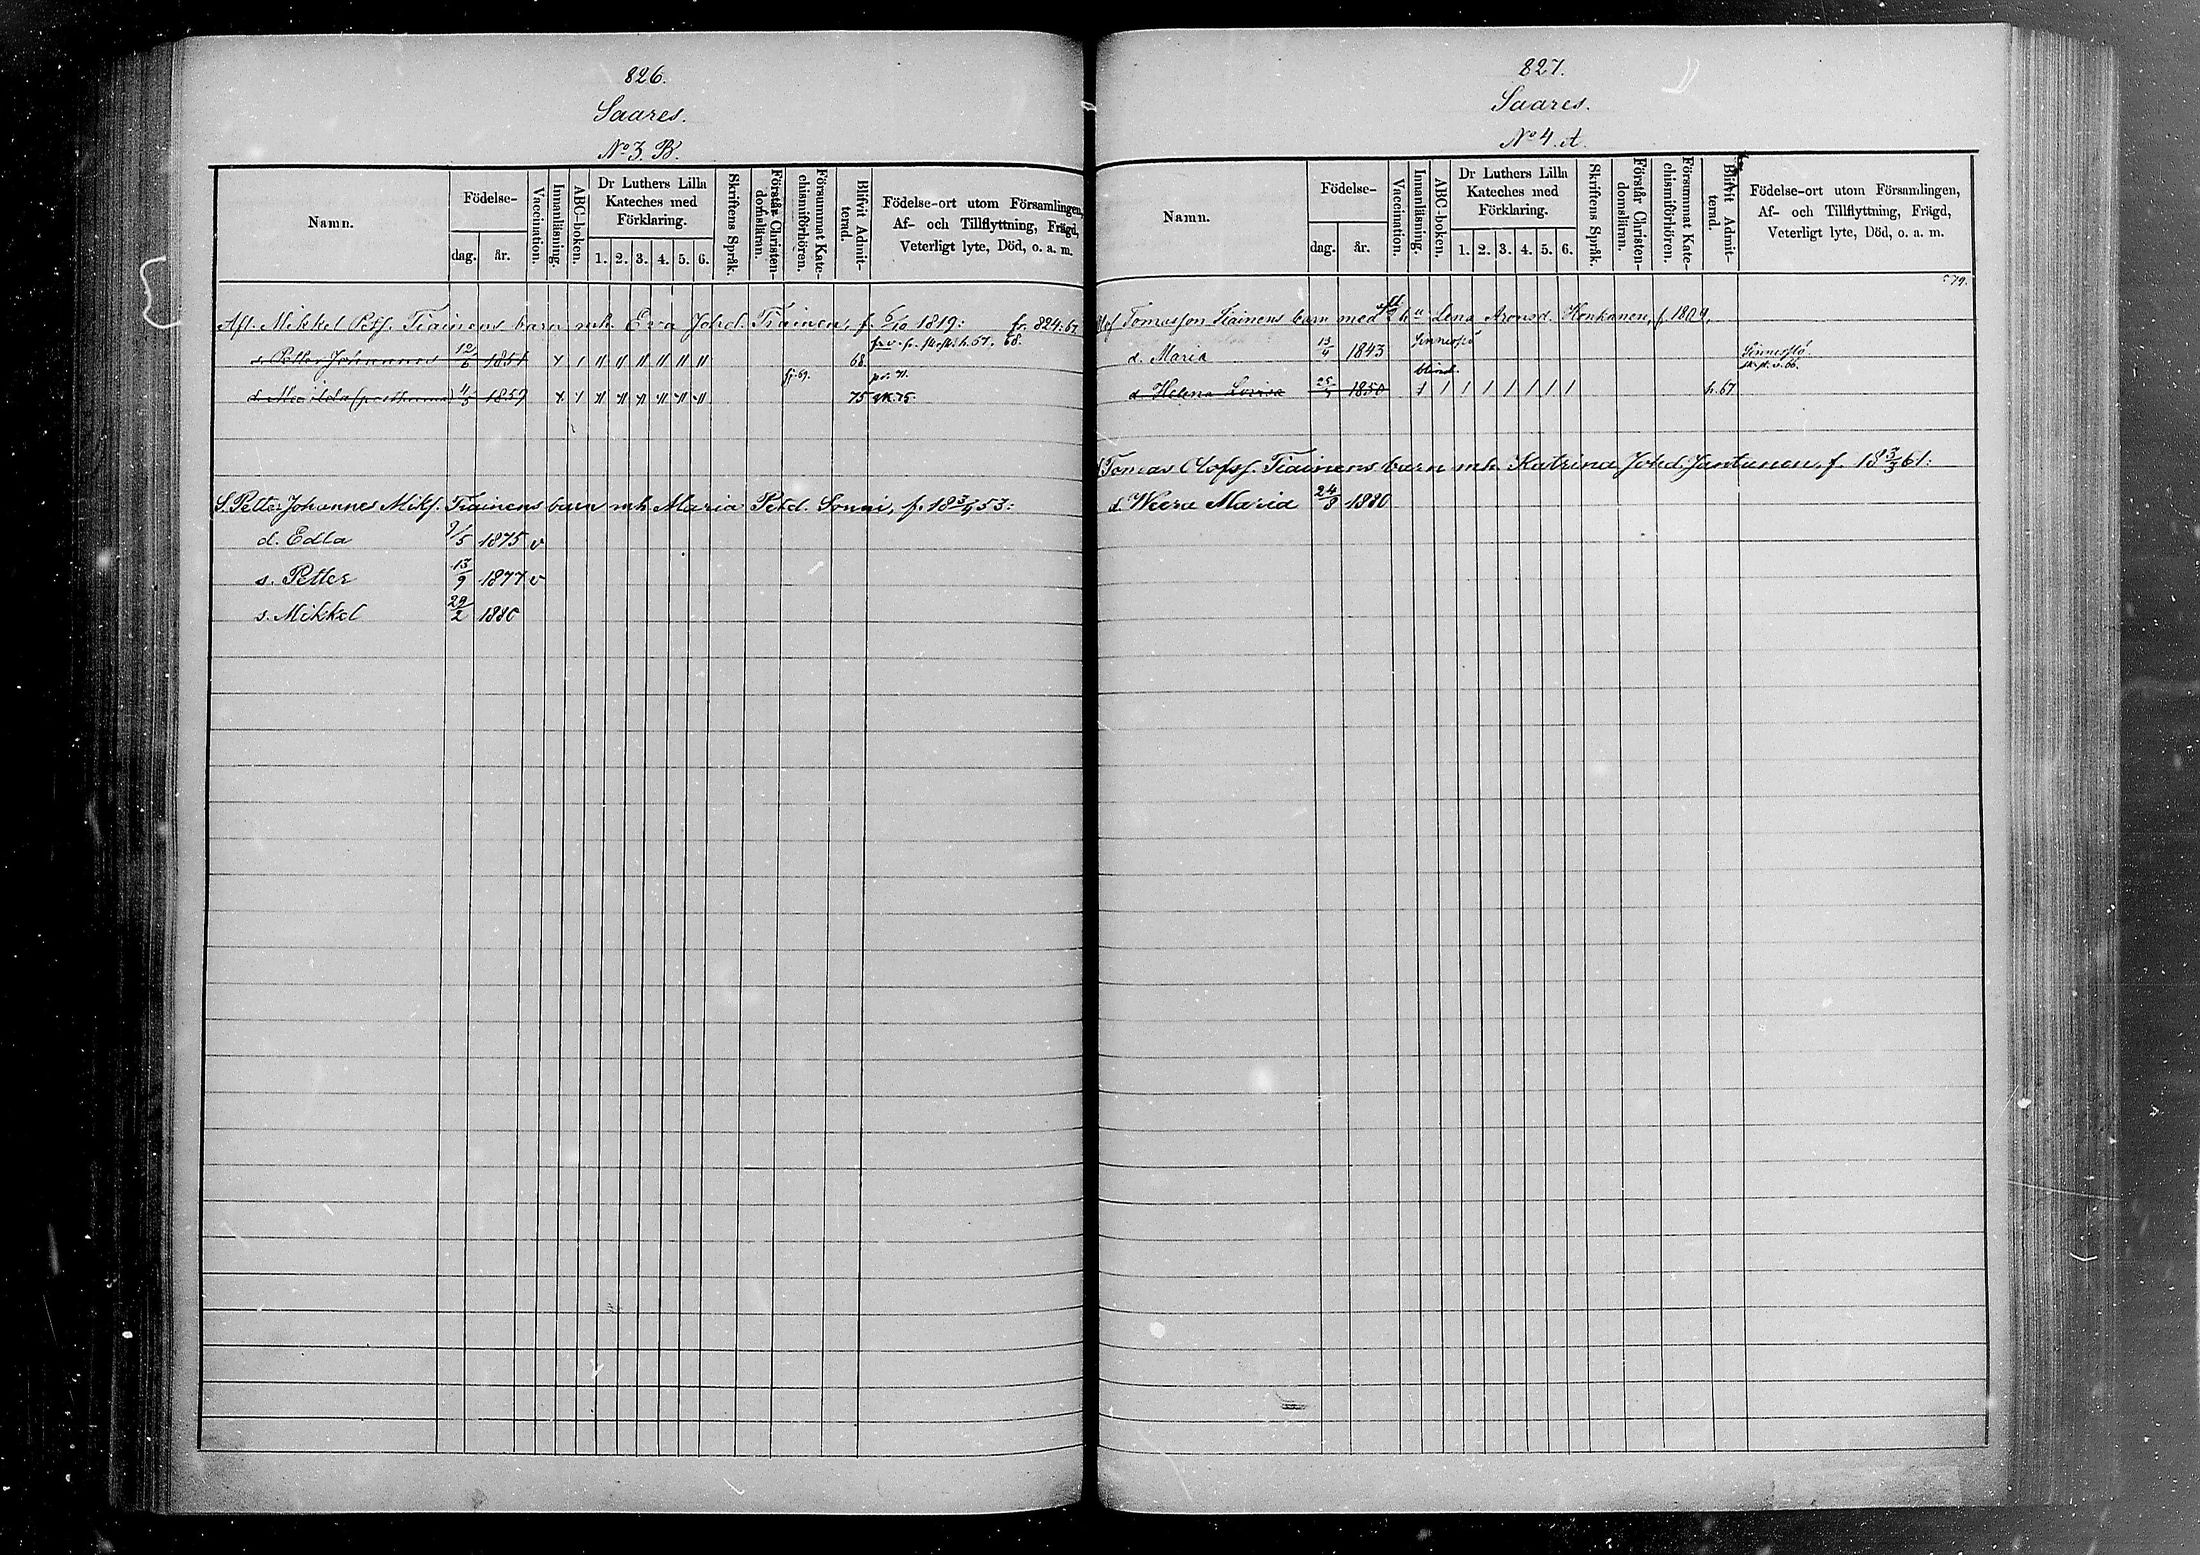 826.
Saares.
No 3. B.
Namn. Födelse- dag. år. Vaccination. Innanläsning. ABC-boken. Dr Luthers Lilla Kateches med Förklaring. 1. 2. 3. 4. 5. 6. Skriftens Språk. Förstår Christendomsläran. Försummat Katechismiförhören. Blifvit Admitterad. Födelse-ort utom Församlingen, Af- och Tillflyttning, Frägd, Veterligt lyte, Död, o. a. m.
Afl. Mikkel Petf. Tiainens barn mh. Eva Johd. Tiainen, f. 6/10 1819: fr. 824: 67
s. Petter Johannes 12/6 1851 x 1 68.
fj. 69.
d. (posthuma) 4/5 1859 x 75
S. Petter Johannes Mikf. Tiainens barn mh. Maria Petd. Sonni, f. 18 3/5 53:
d. Edla 9/5 1875 v
s. Petter 13/9 1877 v
s. Mikkel 29/2 1880
827.
Saares.
No 4. A.
Namn. Födelse- dag. år. Vaccination. Innanläsning. ABC-boken. Dr Luthers Lilla Kateches med Förklaring. 1. 2. 3. 4. 5. 6. Skriftens Språk. Förstår Christendomsläran. Försummat Katechismiförhören. Blifvit Admitterad. Födelse-ort utom Församlingen, Af- och Tillflyttning, Frägd, Veterligt lyte, Död, o. a. m.
79.
Olof Tomasson Tiainens barn med h:u Lena Aronsd. Honkanen, f. 1809,
d. Maria 13/4 1843 Sinnesslö Sinnesslö.
blind.
d. Helena Lovisa 25/5 1850 1 1 1 1 1 1 1 1 h. 67
Tomas Olofsf. Tiainens barn mh. Katrina Johd. Jantunen, f. 18 3/3 61:
d. Weera Maria 24/8 1880